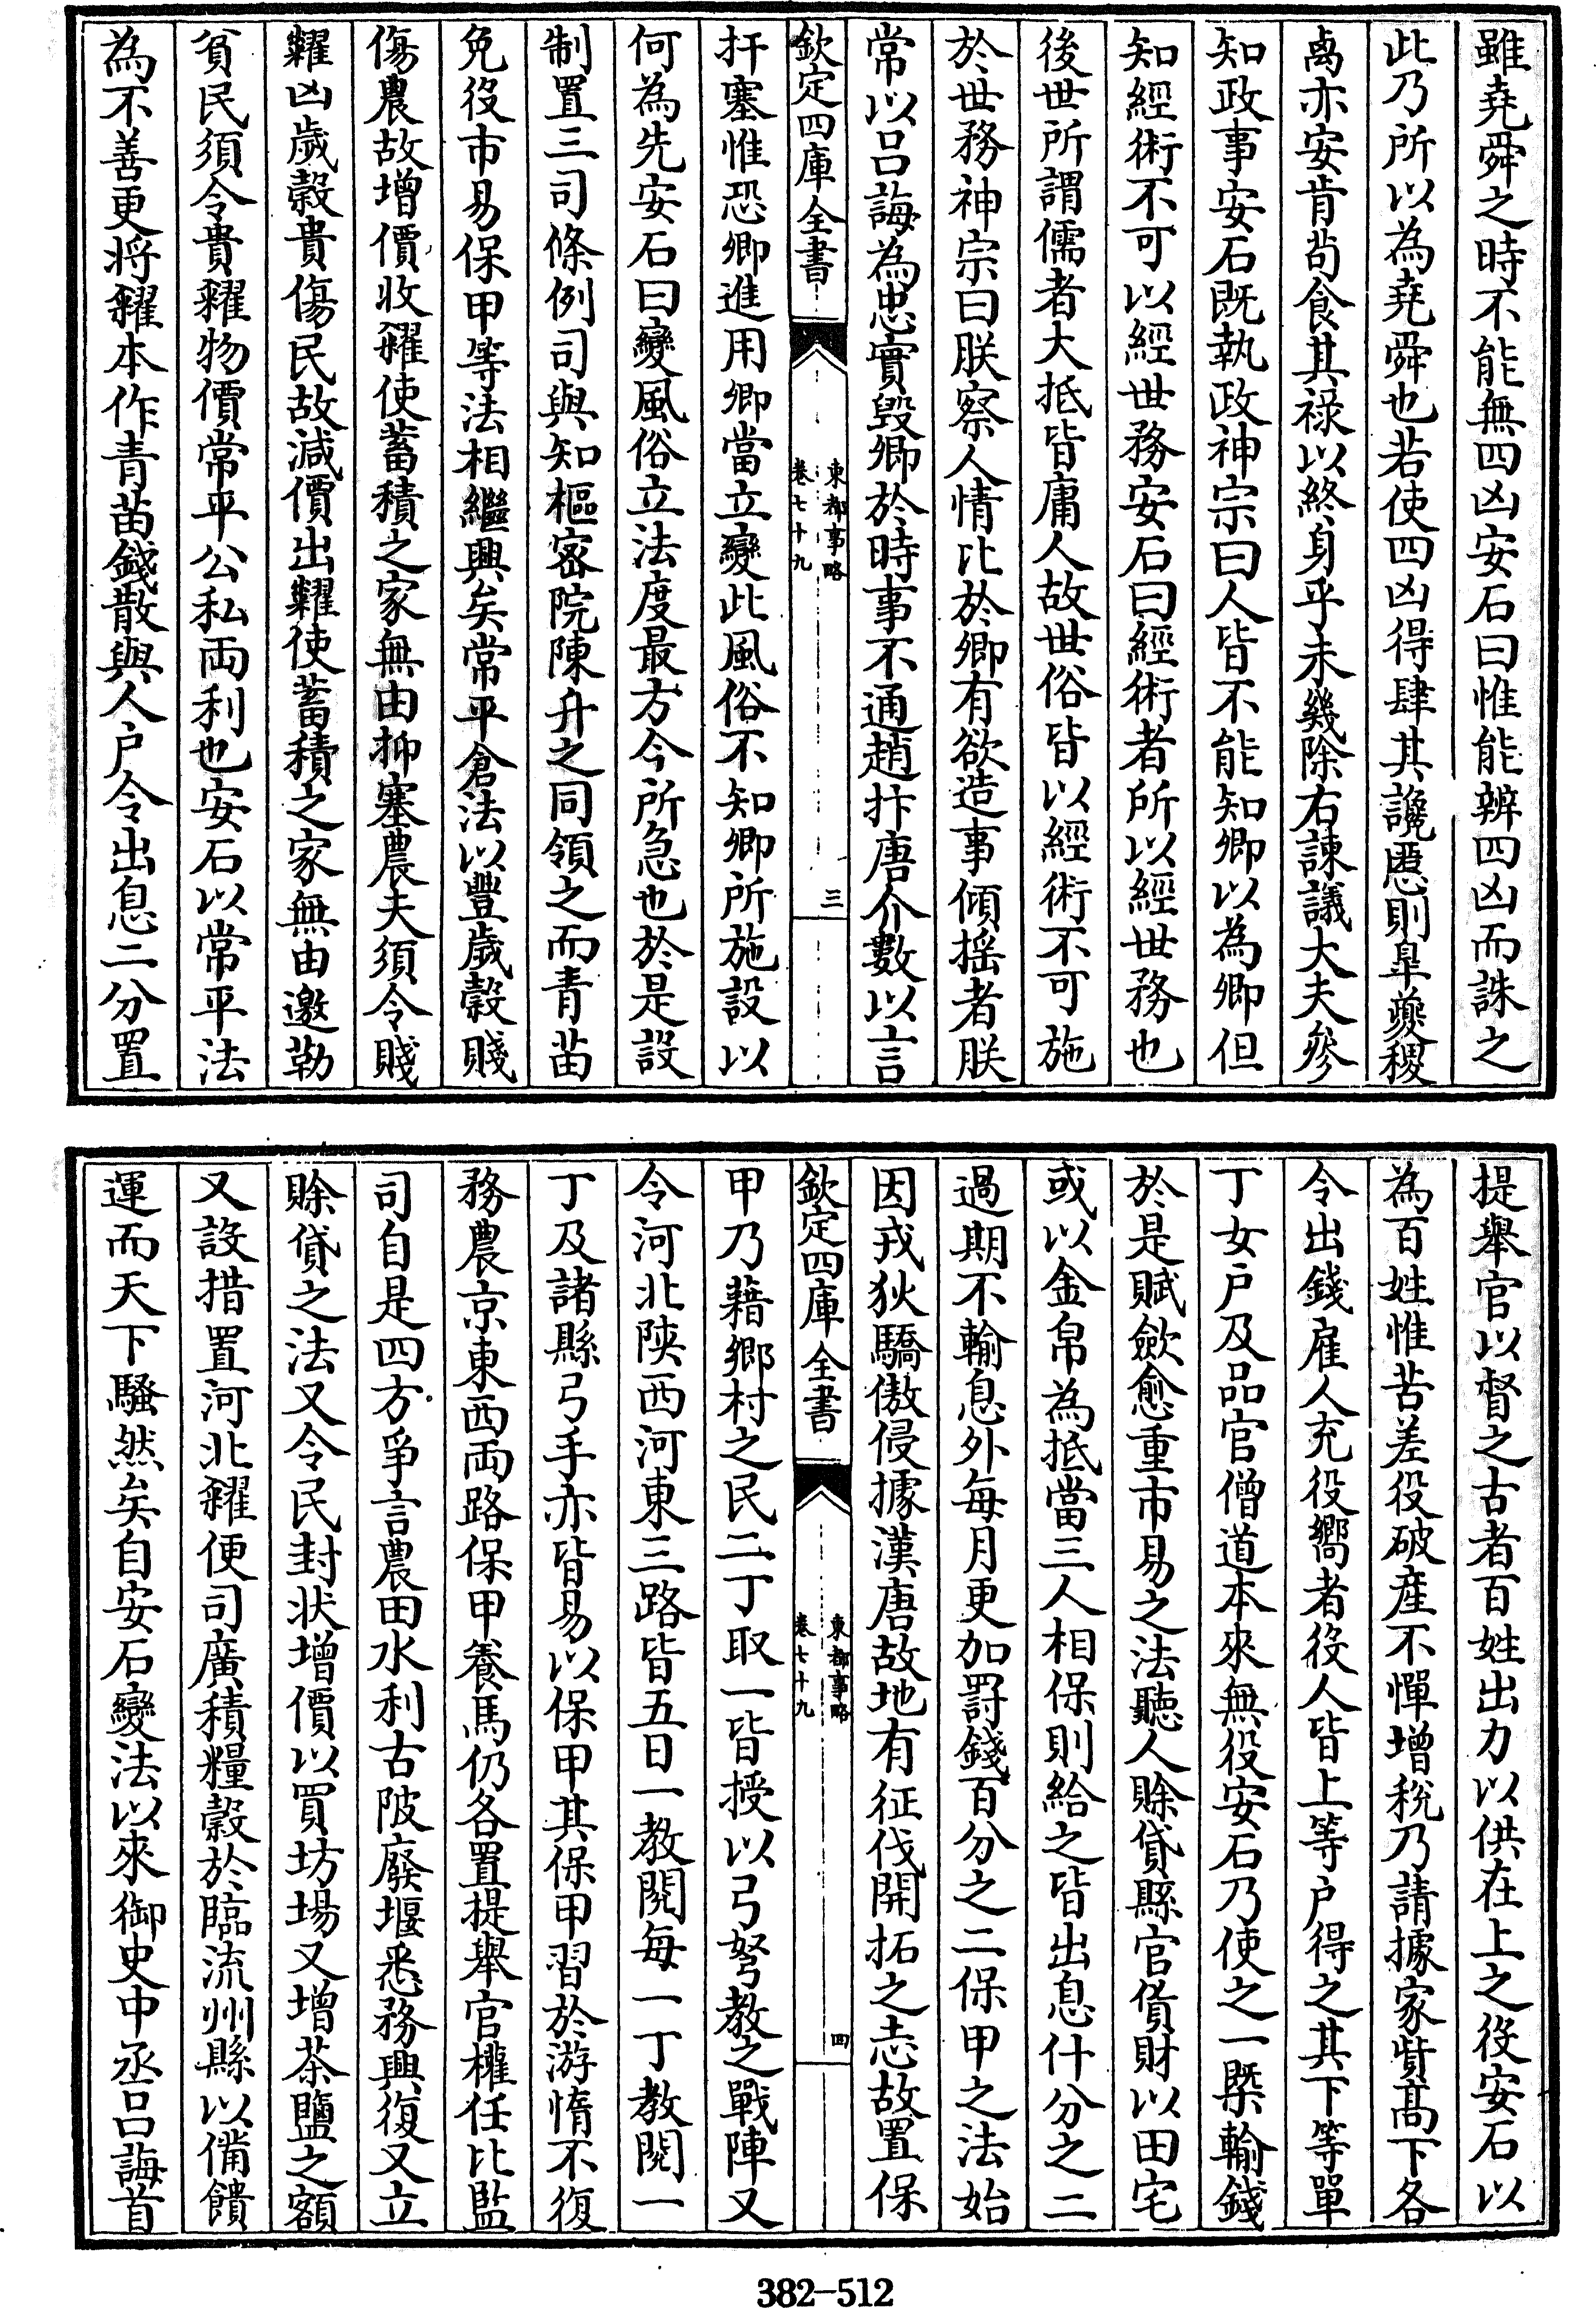 雖堯舜之時不能無四凶安石曰惟能辨四凶而誅之
此乃所以為堯舜也若使四凶得肆其讒慝則臯夔稷
卨亦安肯茍食其祿以終身乎未幾除右諫議大夫叅
知政事安石既執政神宗曰人皆不能知卿以為卿但
知經術不可以經世務安石曰經術者所以經世務也
後世所謂儒者大抵皆庸人故世俗皆以經術不可施
於世務神宗曰朕察人情比於卿有欲造事傾揺者朕
常以吕誨為忠實毀卿於時事不通趙抃唐介數以言
欽定四庫全書
東都事略
卷七十九
三
扞塞惟恐卿進用卿當立變此風俗不知卿所施設以
何為先安石曰變風俗立法度最方今所急也於是設
制置三司條例司與知樞密院陳升之同領之而青苗
免役市易保甲等法相繼興矣常平倉法以豐歲榖賤
傷農故增價收糴使蓄積之家無由抑塞農夫須令賤
糶凶歲榖貴傷民故減價出糶使蓄積之家無由邀勒
貧民須令貴糴物價常平公私両利也安石以常平法
為不善更將糴本作青苗錢散與人户令出息二分置
提舉官以督之古者百姓出力以供在上之役安石以
為百姓惟苦差役破産不憚增稅乃請據家貲髙下各
令出錢雇人充役嚮者役人皆上等户得之其下等單
丁女户及品官僧道本來無役安石乃使之一槩輸錢
於是賦斂愈重市易之法聽人賒貸縣官貨財以田宅
或以金帛為抵當三人相保則給之皆出息什分之二
過期不輸息外每月更加罸錢百分之二保甲之法始
因戎狄驕傲侵據漢唐故地有征伐開拓之志故置保
欽定四庫全書
東都事略
卷七十九
四
甲乃藉鄉村之民二丁取一皆授以弓弩教之戰陣又
令河北陜西河東三路皆五日一教閱每一丁教閱一
丁及諸縣弓手亦皆易以保甲其保甲習於游惰不復
務農京東西両路保甲養馬仍各置提舉官權任比監
司自是四方爭言農田水利古陂廢堰悉務興復又立
賒貸之法又令民封狀增價以買坊場又增茶鹽之額
又設措置河北糴便司廣積糧榖於臨流州縣以備饋
運而天下騷然矣自安石變法以來御史中丞吕誨首
382-512